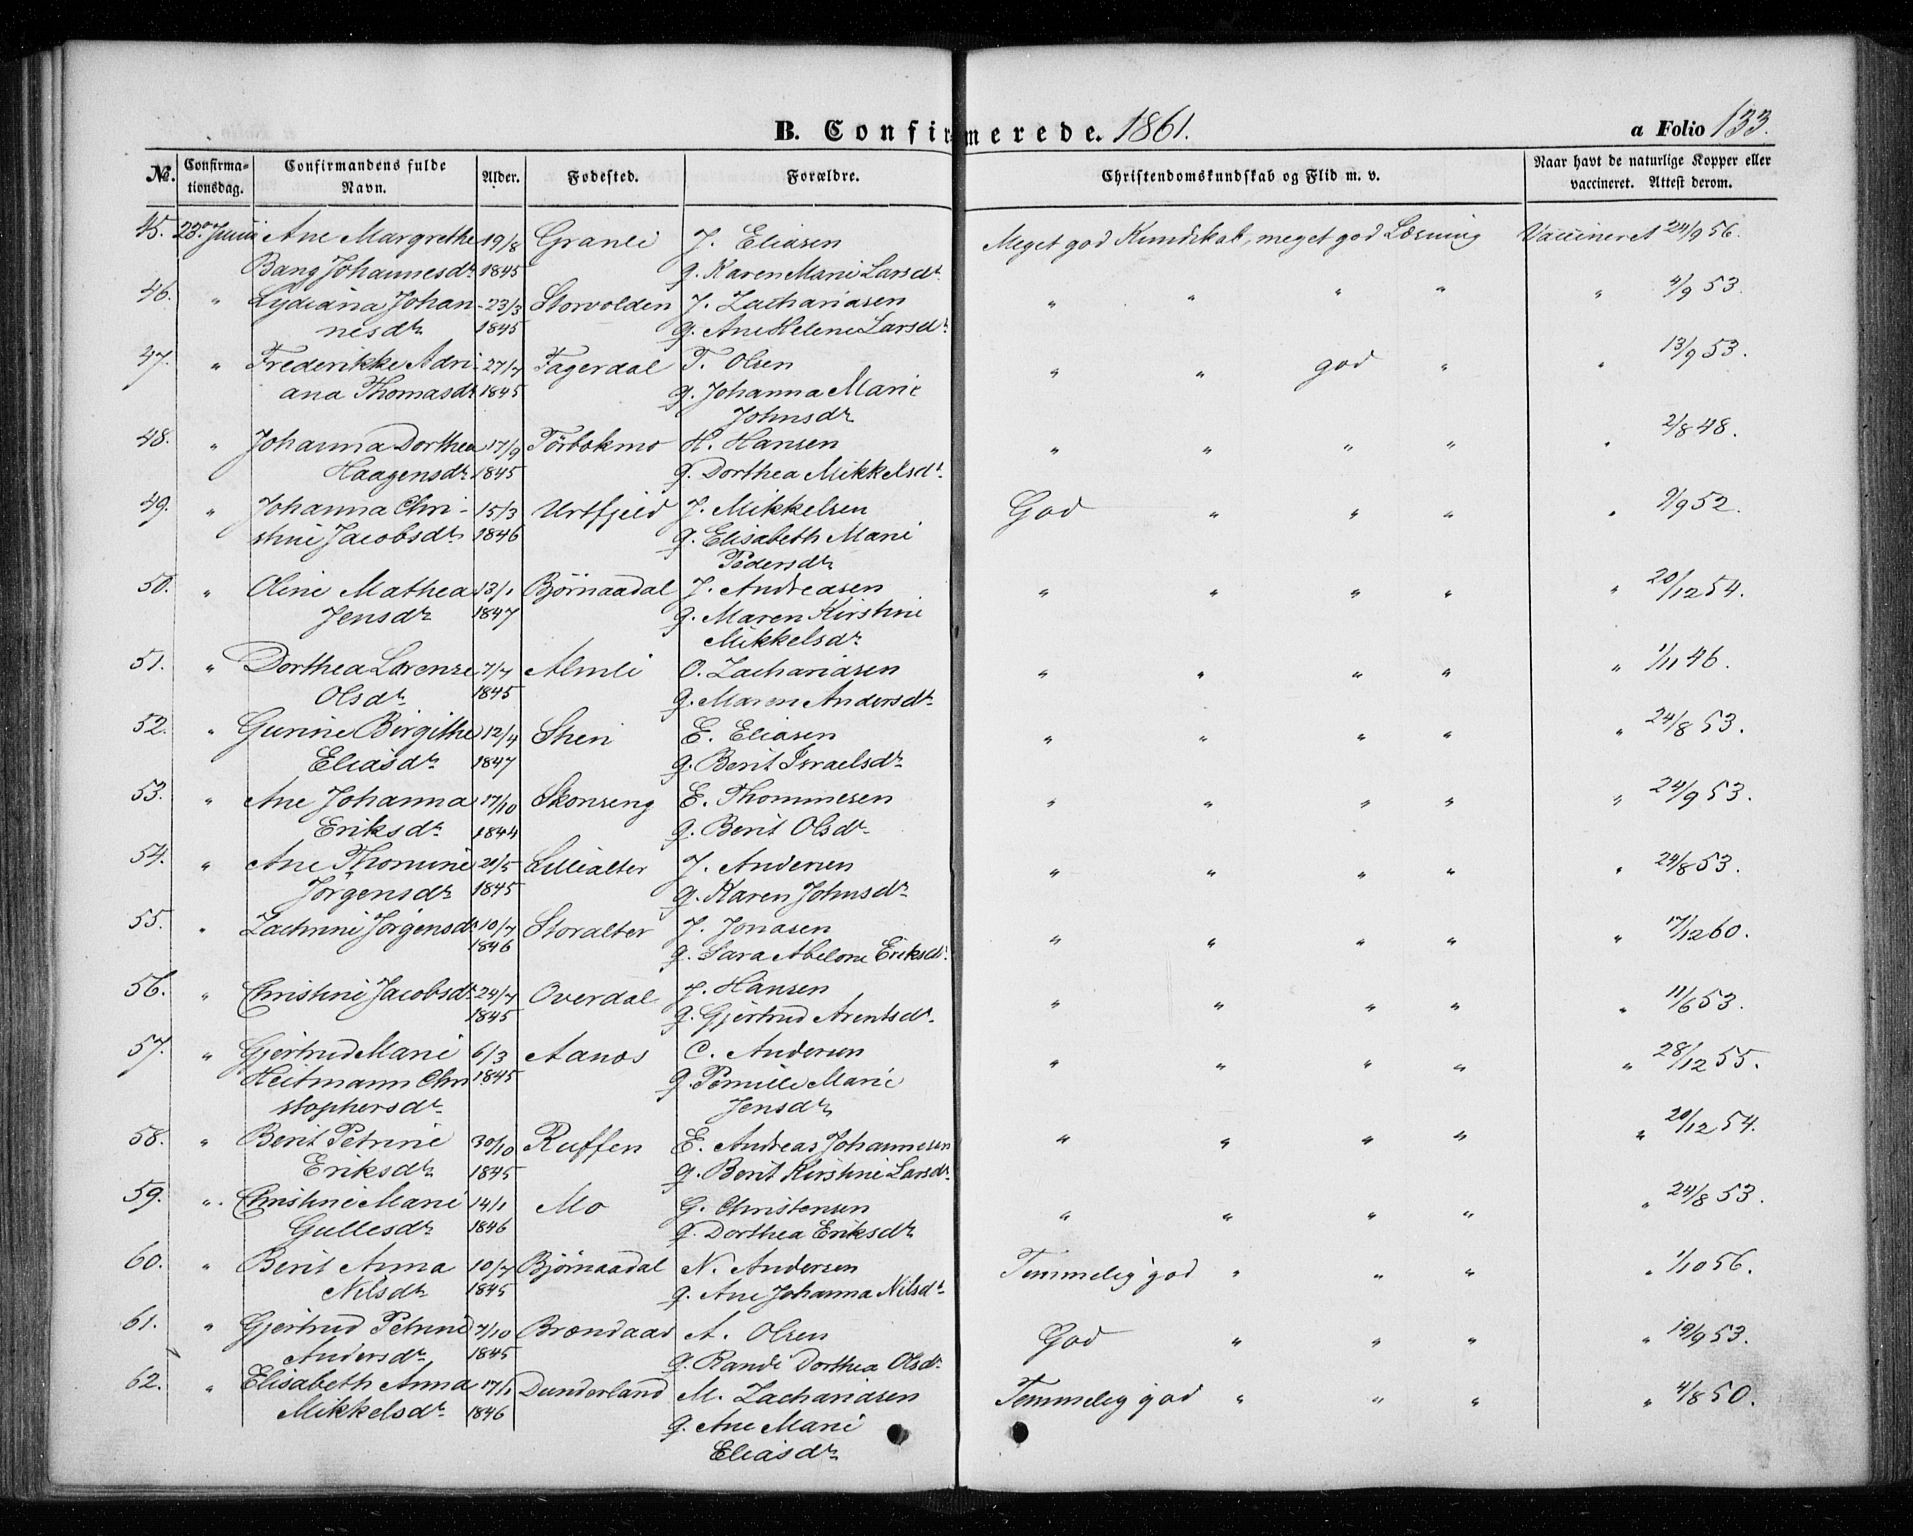 B. Confirmerede. 1861.
a Folio 133.
No. Confirmationsdag. Confirmandens fulde Navn. Alder. Fødested. Forældre. Christendomskundskab og Flid m. v. Naar havt de naturlige Kopper eller vaccineret. Attest derom.
45. 23de Juni Ane Margrethe 19/8 Granli J. Eliasen Meget god Kundskab, meget god Læsning Vaccineret 24/9 56.
Bang Johannesdr. 1845 g. Karen Marie Larsdr.
46. " Lydiana Johan- 23/3 Storvolden J. Zachariasen " " " " " 4/9 53.
nesdr. 1845 g. Ane Helene Larsdr.
47. " Frederikke Adri- 27/7 Fagerdal T. Olsen " " god " " 13/9 53.
ana Thomasdr. 1845 g. Johanna Marie
Johnsdr.
48. " Johanna Dorthea 17/9 Törbekmo H. Hansen " " " " " 2/8 48.
Haagensdr. 1845 g. Dorthea Mikkelsdr.
49. " Johanna Chri- 15/3 Urtfjeld J. Mikkelsen God " " " " 9/9 52.
stine Jacobsdr. 1846 g. Elisabeth Marie
Pedersdr.
50. " Oline Mathea 13/1 Bjørnaadal J. Andreasen " " " " " 20/12 54.
Jensdr. 1847 g. Maren Kirstine
Mikkelsdr.
51. " Dorthea Lorense 7/7 Almli O. Zachariasen " " " " " 1/11 46.
Olsdr. 1845 g. Maren Andersdr.
52. " Gurine Birgithe 12/4 Steni E. Eliasen " " " " " 24/8 53.
Eliasdr. 1847 g. Berit Israelsdr.
53. " Ane Johanna 17/10 Skonseng E. Thommesen " " " " " 24/9 53.
Eriksdr. 1844 g. Berit Olsdr.
54. " Ane Thomine 20/5 Lillealter J. Andersen " " " " " 24/8 53.
Jørgensdr. 1845 g. Karen Johnsdr.
55. " Zachrine Jørgensdr. 10/7 Storalter J. Jonasen " " " " " 17/12 60.
1846 g. Sara Abelone Eriksdr.
56. " Christine Jacobsdr. 24/7 Overdal J. Hansen " " " " " 11/6 53.
1845 g. Gjertrud Arentsdr.
57. " Gjertrud Marie 6/3 Aanæs C. Andersen " " " " " 28/12 55.
Heitmann Chri 1845 g. Pernille Marie
stophersdr. Jensdr.
58. " Berit Petrine 30/10 Ruffen E. Andreas Johannesen " " " " " 20/12 54.
Eriksdr. 1845 g. Berit Kirstine Larsdr.
59. " Christine Marie 14/1 Mo G. Christensen " " " " " 24/8 53.
Gullesdr. 1846 g. Dorthea Eriksdr.
60. " Berit Anna 10/7 Bjørnaadal N. Andersen Temmelig god " " " " 1/10 56.
Nilsdr. 1845 g. Ane Johanna Nilsdr.
61. " Gjertrud Petrine 7/10 Brændaas A. Olsen God " " " " 19/9 53.
Andersdr. 1845 g. Randi Dorthea Olsdr.
62. " Elisabeth Anna 17/1 Dunderland M. Zachariasen Temmelig god " " " " 4/8 50.
Mikkelsdr. 1846 g. Ane Marie
Eliasdr.